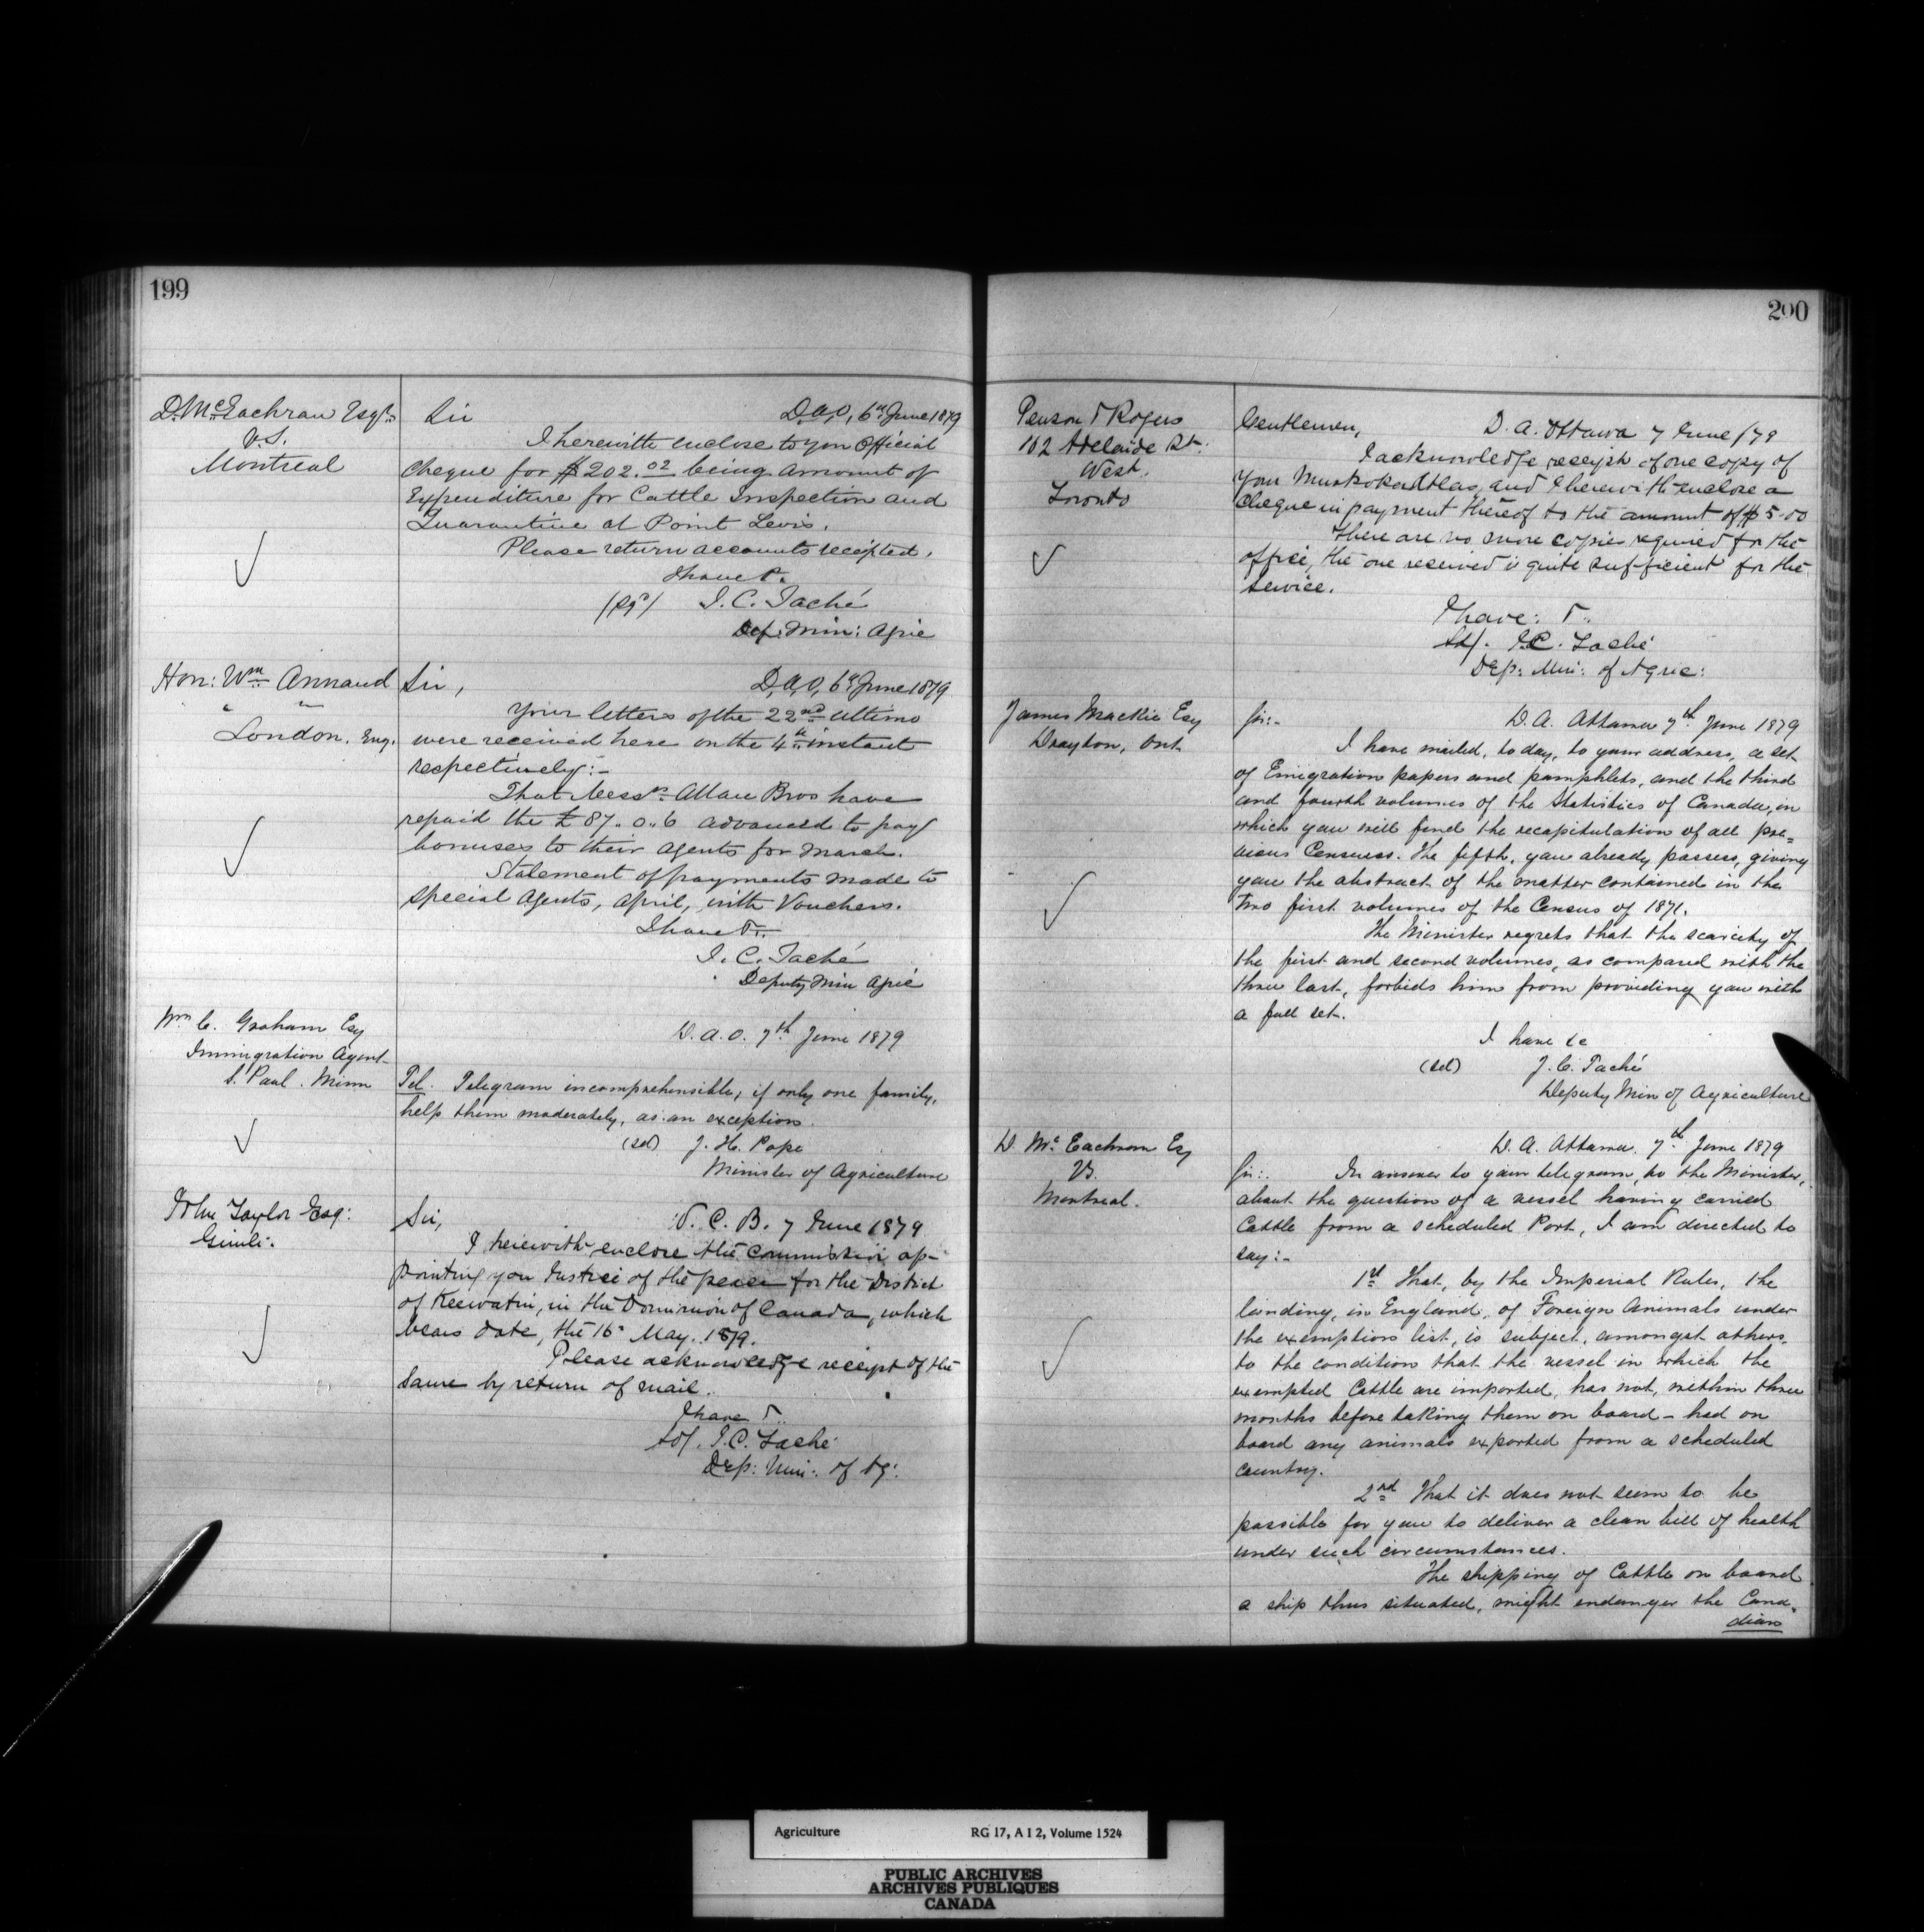 199
D. McEachran Esqr.
V.S.
Montreal
Sir
D.A.O, 6th June 1879
I herewith enclose to you Official
Cheque for $202.02 being amount of
Expenditure for Cattle Inspection and
Quarantine at Point Levis.
Please return accounts receipted.
I have &.
(Sgd) J. C. Taché
Dep: Min: Agric
Hon: Wm Annand
London, Eng.
Sir,
D.A.O, 6th June 1879
Your letters of the 22nd ultimo
were received here on the 4th instant
respectively:-
That Messrs Allan Bros have
repaid the £87.0.6 advanced to pay
bonuses to their Agents for March.
Statement of payments made to
special Agents, April, with Vouchers.
I have &..
J. C. Taché
Deputy Min Agric
Wm C. Graham Esq
Immigration Agent
S. Paul. Minn
D.A.O. 7th June 1879
Tel. Telegram incomprehensible; if only one family,
help them moderately, as an exception.
(sd) J. H. Pope
Minister of Agriculture
John Taylor Esq:
Gimli.
Sir,
7 June 1879
I herewith enclose the Commission ap-
pointing you Justice of the peace for the District
of Keewatin, in the Dominion of Canada, which
bears date, the 16th May, 1879.
Please acknowledge receipt of the
same by return of mail.
I have &..
Sd/. J.C. Taché
Dep: Min: of Ag:
200
Penson & Rogers
102 Adelaide St.
West.
Toronto
Gentlemen,
D. A. Ottawa 7 June /79
I acknowledge receipt of one copy of
your Muskoka Atlas, and I herewith enclose a
cheque in payment thereof to the amount of $5.00
There are no more copies required for the
office, the one received is quite sufficient for the
service.
I have: &..
Sd/. J.C. Taché
Dep: Min: of Agric:
James Mackie Esq
Drayton, Ont
Sir:-
D.A. Ottawa 7th June 1879
I have mailed, today, to your address, a set
of Emigration papers and pamphlets, and the third
and fourth volumes of the Statistics of Canada, in
which you will find the recapitulation of all pre=
vious Censuses. The fifth, you already possess, giving
you the abstract of the matter contained in the
two first volumes of the Census of 1871.
The Minister regrets that the scarcity of
the first and second volumes, as compared with the
three last, forbids him from providing you with
a full set.
I have &c
(sd) J. C. Taché
Deputy Min of Agriculture
D. McEachran Esq
VS.
Montreal.
D.A. Ottawa. 7th June 1879
Sir:. In answer to your telegram, to the Minister,
about the question of a vessel having carried
Cattle from a scheduled Port, I am directed to
say:-
1st That, by the Imperial Rules, the
landing, in England, of Foreign Animals under
the exemption list, is subject, amongst others,
to the condition that the vessel in which the
exempted Cattle are imported, has not, within three
months before taking them on board - had on
board any animals exported from a scheduled
country.
2nd That it does not seem to be
possible for you to deliver a clean bill of health
under such circumstances.
The shipping of Cattle on board
a ship thus situated, might endanger the Cana-
dian
Agriculture RG 17, A I 2, Volume 1524
PUBLIC ARCHIVES
ARCHIVES PUBLIQUES
CANADA